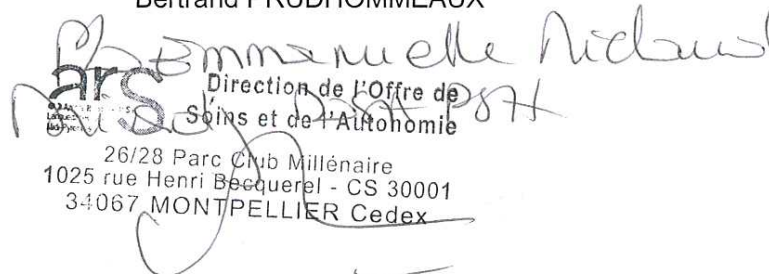 Bertrand PRUDHOMMEAUX
Emmanuelle Michaud
ars
Direction de l'Offre de
Soins et de l'Autonomie
26/28 Parc Club Millénaire
1025 rue Henri Becquerel - CS 30001
34067 MONTPELLIER Cedex